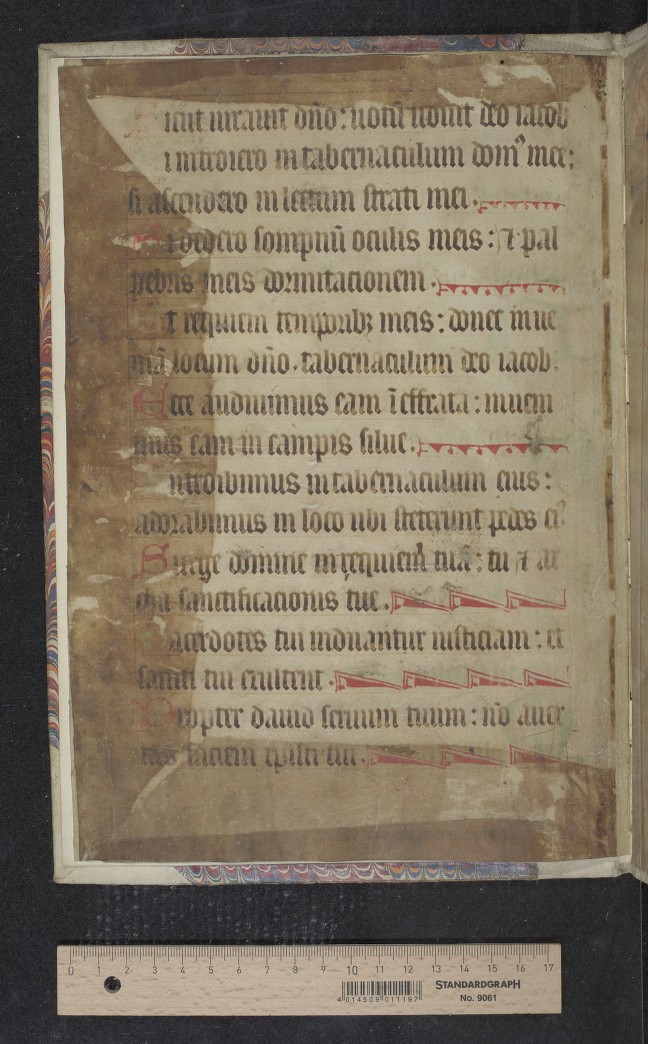 icut iurauit dño: uotũ uouit deo iacob
i introiero in tabernaculum dom⁹ mee:
si ascendero in lectum strati mei.
Si dedero sompnũ oculis meis: ⁊ pal
pebris meis dormitacionem.
Et requiem temporibꝫ meis: donec inue
niã locum dño. tabernaculum deo iacob.
Ecce audiuimus eam ĩ effrata: inuem
mus eam in campis silue.
ntroibimus in tabernaculum eius:
adorabimus in loco ubi steterunt pedes ei⁹
Surge domine in requiem tuã: tu ⁊ ar
cha sanctificacionis tue.
acerdotes tui induantur iusticiam: et
sancti tui exultent.
Propter dauid seruum tuum: nõ auer
tas faciem xpisti tui.
0 1 2 3 4 5 6 7 8 9 10 11 12 13 14 15 16 17
STANDARDGRAPH
No. 9061
4 014509 011197